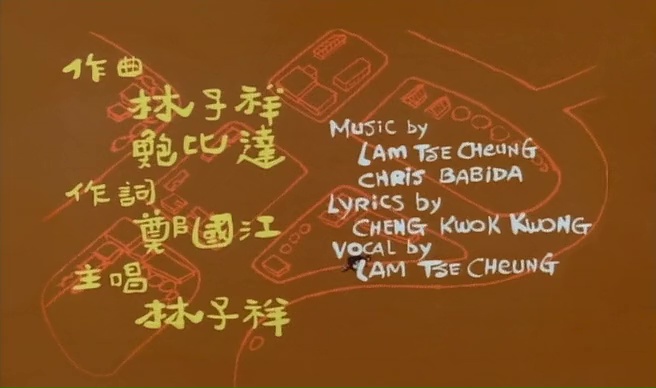 作曲
林子祥
鮑比達
作詞
鄭國江
主唱
林子祥
MUSIC by
LAM TSE CHEUNG
CHRIS BABIDA
LYRICS by
CHENG KWOK KWONG
VOCAL by
LAM TSE CHEUNG